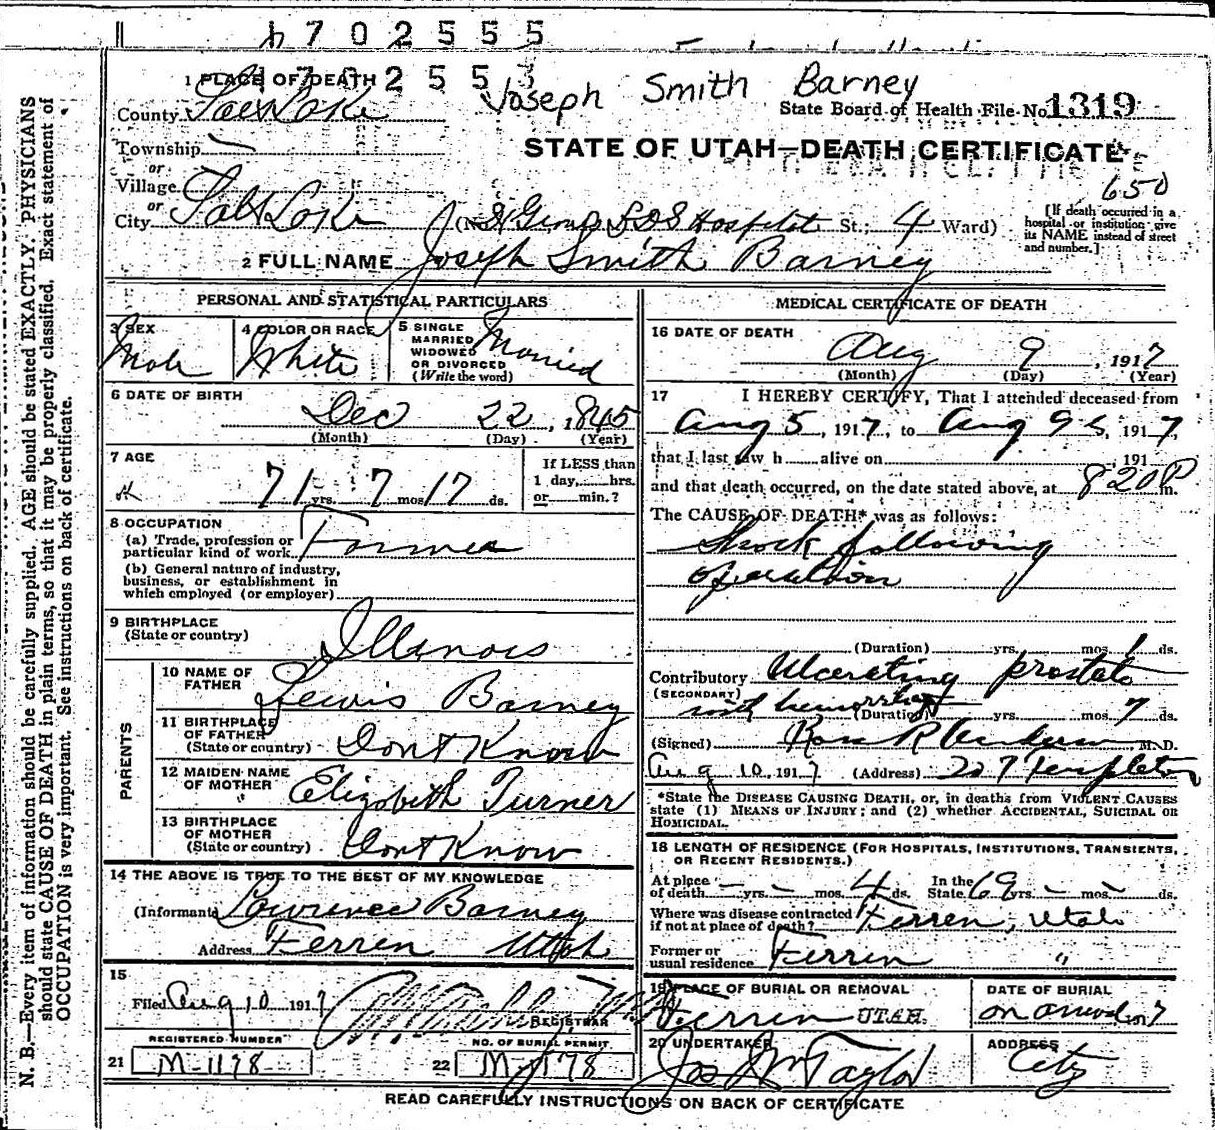 1702555
1 PLACE OF DEATH
702553
Joseph Smith Barney
County Salt Lake
State Board of Health File No. 1319
Township
STATE OF UTAH—DEATH CERTIFICATE
or
Village
650
or
City Salt Lake
(No. LDS Hospital St.; 4 Ward)
[If death occurred in a hospital or institution give its NAME instead of street and number.]
2 FULL NAME Joseph Smith Barney
PERSONAL AND STATISTICAL PARTICULARS
3 SEX
Male
4 COLOR OR RACE
White
5 SINGLE
MARRIED
WIDOWED
OR DIVORCED
(Write the word)
Married
6 DATE OF BIRTH
Dec 22, 1845
(Month) (Day) (Year)
7 AGE
71 yrs. 7 mos. 17 ds.
If LESS than
1 day, hrs.
or min.?
8 OCCUPATION
(a) Trade, profession or
particular kind of work Farmer
(b) General nature of industry,
business, or establishment in
which employed (or employer)
9 BIRTHPLACE
(State or country) Illinois
PARENTS
10 NAME OF
FATHER Lewis Barney
11 BIRTHPLACE
OF FATHER
(State or country) Dont Know
12 MAIDEN NAME
OF MOTHER Elizabeth Turner
13 BIRTHPLACE
OF MOTHER
(State or country) Dont Know
14 THE ABOVE IS TRUE TO THE BEST OF MY KNOWLEDGE
(Informant) Lawrence Barney
Address Ferren Utah
15
Filed Aug 10 1917
REGISTRAR
REGISTERED NUMBER
21 M-1178
NO. OF BURIAL PERMIT
22 M-1178
MEDICAL CERTIFICATE OF DEATH
16 DATE OF DEATH
Aug 9, 1917
(Month) (Day) (Year)
17 I HEREBY CERTIFY, That I attended deceased from
Aug 5, 1917, to Aug 9, 1917,
that I last saw h alive on 191
and that death occurred, on the date stated above, at 820 P m.
The CAUSE OF DEATH* was as follows:
Shock following
operation
(Duration) yrs. mos. 1 ds.
Contributory Ulcerating prostate
(SECONDARY)
with hemorrhage
(Duration) yrs. mos. 7 ds.
(Signed) M.D.
Aug 10, 1917 (Address) 207 Templeton
*State the DISEASE CAUSING DEATH, or, in deaths from VIOLENT CAUSES
state (1) MEANS OF INJURY; and (2) whether ACCIDENTAL, SUICIDAL OR
HOMICIDAL.
18 LENGTH OF RESIDENCE (FOR HOSPITALS, INSTITUTIONS, TRANSIENTS,
OR RECENT RESIDENTS.)
At place
of death - yrs. - mos. 4 ds.
In the
State 69 yrs. - mos. - ds.
Where was disease contracted
if not at place of death? Ferren, Utah
Former or
usual residence Ferren "
19 PLACE OF BURIAL OR REMOVAL
Ferren UTAH.
DATE OF BURIAL
on arrival 7
20 UNDERTAKER
Jos Wm Taylor
ADDRESS
City
READ CAREFULLY INSTRUCTIONS ON BACK OF CERTIFICATE
N. B.—Every item of information should be carefully supplied. AGE should be stated EXACTLY. PHYSICIANS
should state CAUSE OF DEATH in plain terms, so that it may be properly classified. Exact statement of
OCCUPATION is very important. See instructions on back of certificate.